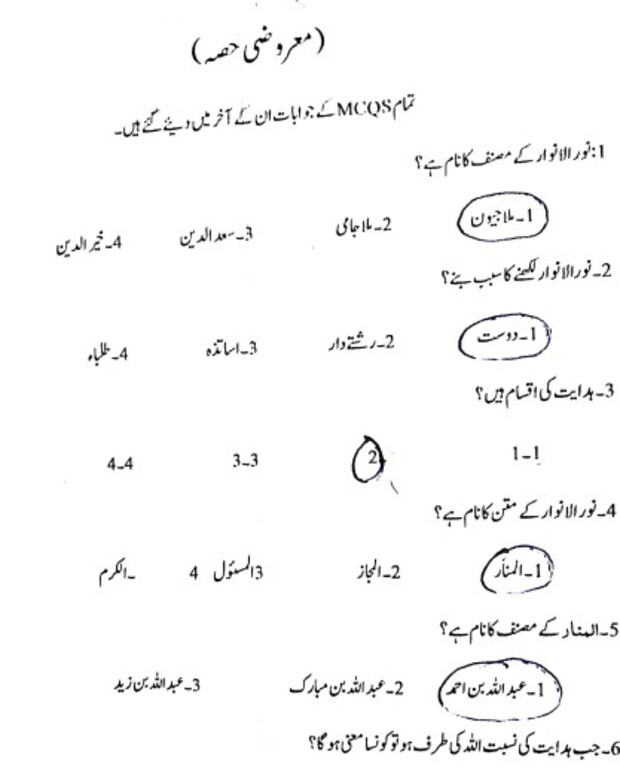 (معروضی حصہ)
تمام MCQS کے جوابات ان کے آخر میں دیئے گئے ہیں۔
1:نور الانوار کے مصنف کا نام ہے؟
1۔ملا جیون 2۔ملا جامی 3۔سعد الدین 4۔خیر الدین
2۔نور الانوار لکھنے کا سبب بنے؟
1۔دوست 2۔رشتے دار 3۔اساتذہ 4۔طلباء
3۔ہدایت کی اقسام ہیں؟
1۔1 2 3۔3 4۔4
4۔نور الانوار کے متن کا نام ہے؟
1۔المنار 2۔المجاز 3المسئول 4 ۔الکرم
5۔المنار کے مصنف کا نام ہے؟
1۔عبد اللہ بن احمد 2۔عبد اللہ بن مبارک 3۔عبد اللہ بن زید
6۔جب ہدایت کی نسبت اللہ کی طرف ہو تو کونسا معنی ہو گا؟